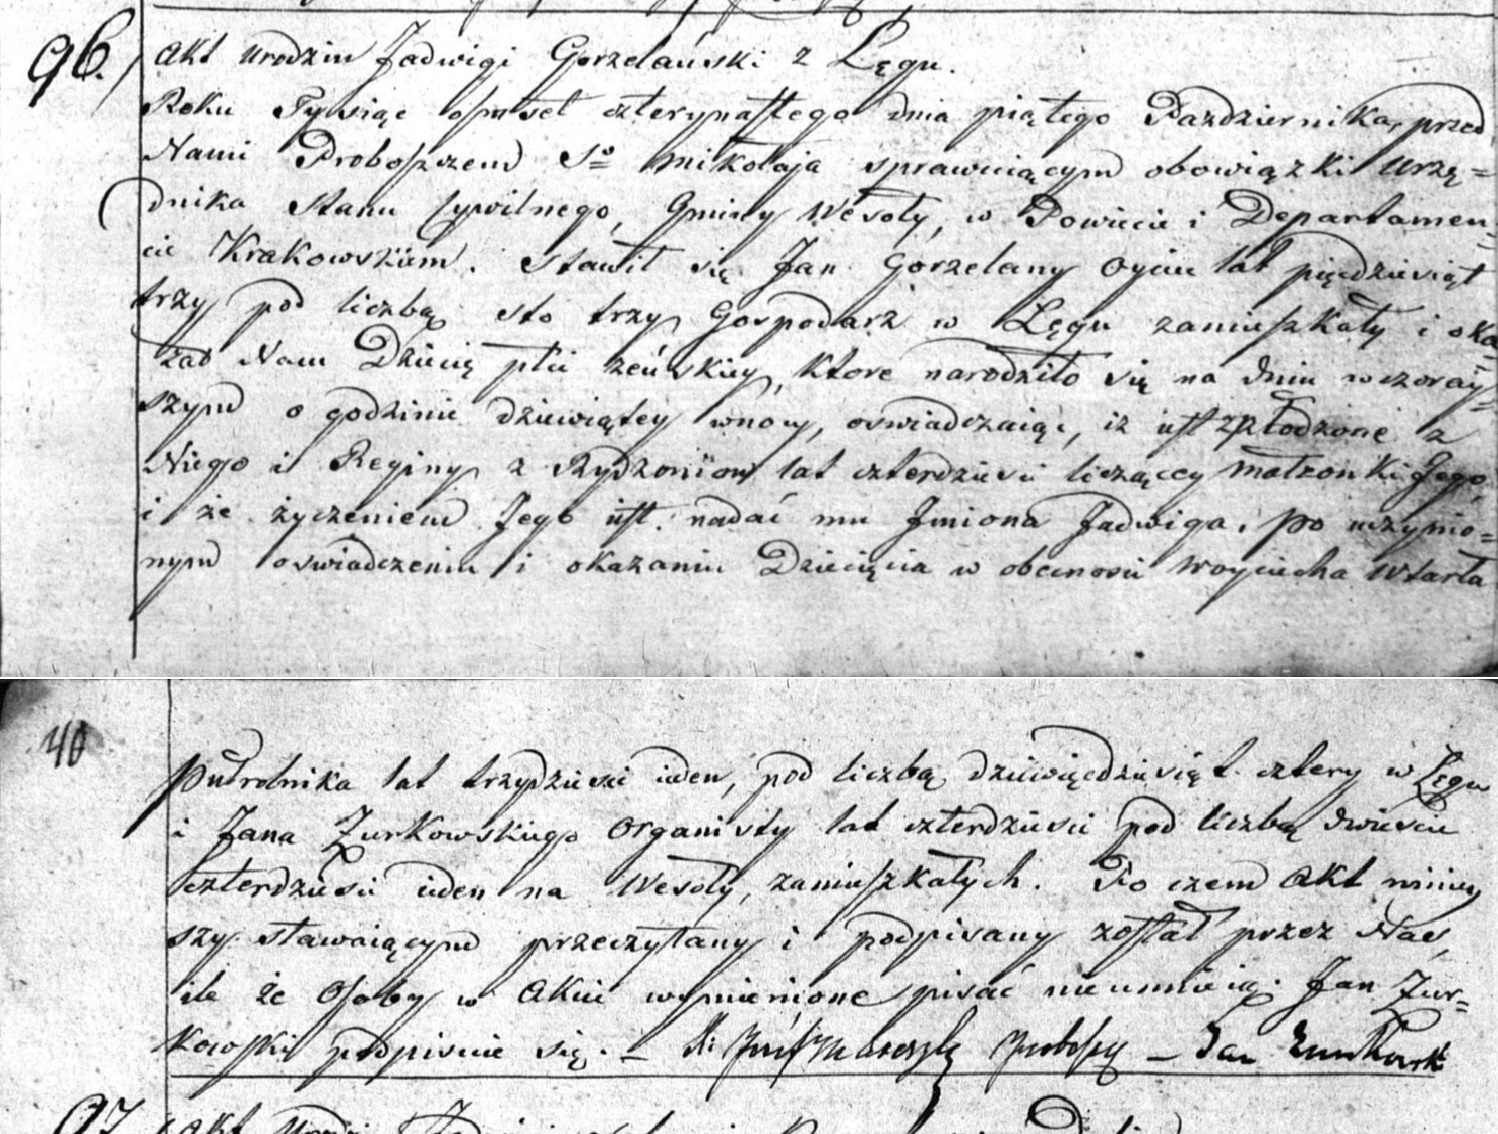 96. Akt urodzin Jadwigi Gorzelański z Łęgu.
Roku Tysiąc osmset czternastego dnia piątego Października, przed
Nami Proboszczem So Mikołaja sprawuiącym obowiązki Urzę=
dnika Stanu Cywilnego, Gminy Wesoły, w Powiecie i Departamen=
cie Krakowskiem. Stawił się Jan Gorzelany Oyciec lat pięcdziesiąt
trzy pod liczbą sto trzy Gospodarz w Łęgu zamieszkały i oka=
zał Nam Dziecię płci żeńskiey, które narodziło się na dniu wczoray=
szym o godzinie dziewiątey wnocy, oswiadczaiąc, iż iest spłodzone z
Niego i Reginy z Rydzoniow lat czterdziesci licząccy małżonki Jego,
i że życzeniem Jego iest nadać mu Jmiona Jadwiga. Po uczynio=
nym oswiadczeniu i okazaniu Dziecięcia w obecnosci Woyciecha Wtarła
40
Pułrolnika lat trzydziesci ieden, pod liczbą dziewięcdziesiąt cztery w Łęgu
i Jana Zurkowskiego Organisty lat czterdziesci pod liczbą dwiescie
czterdziesci ieden na Wesoły, zamieszkałych. Po czem Akt niniey
szy stawaiącym przeczytany i podpisany został przez Nas,
ile że Osoby w Akcie wymienione pisać nieumieią. Jan Zur=
kowski podpisuie się. – Proboszcz – Jan Zurkowsk
97. Akt